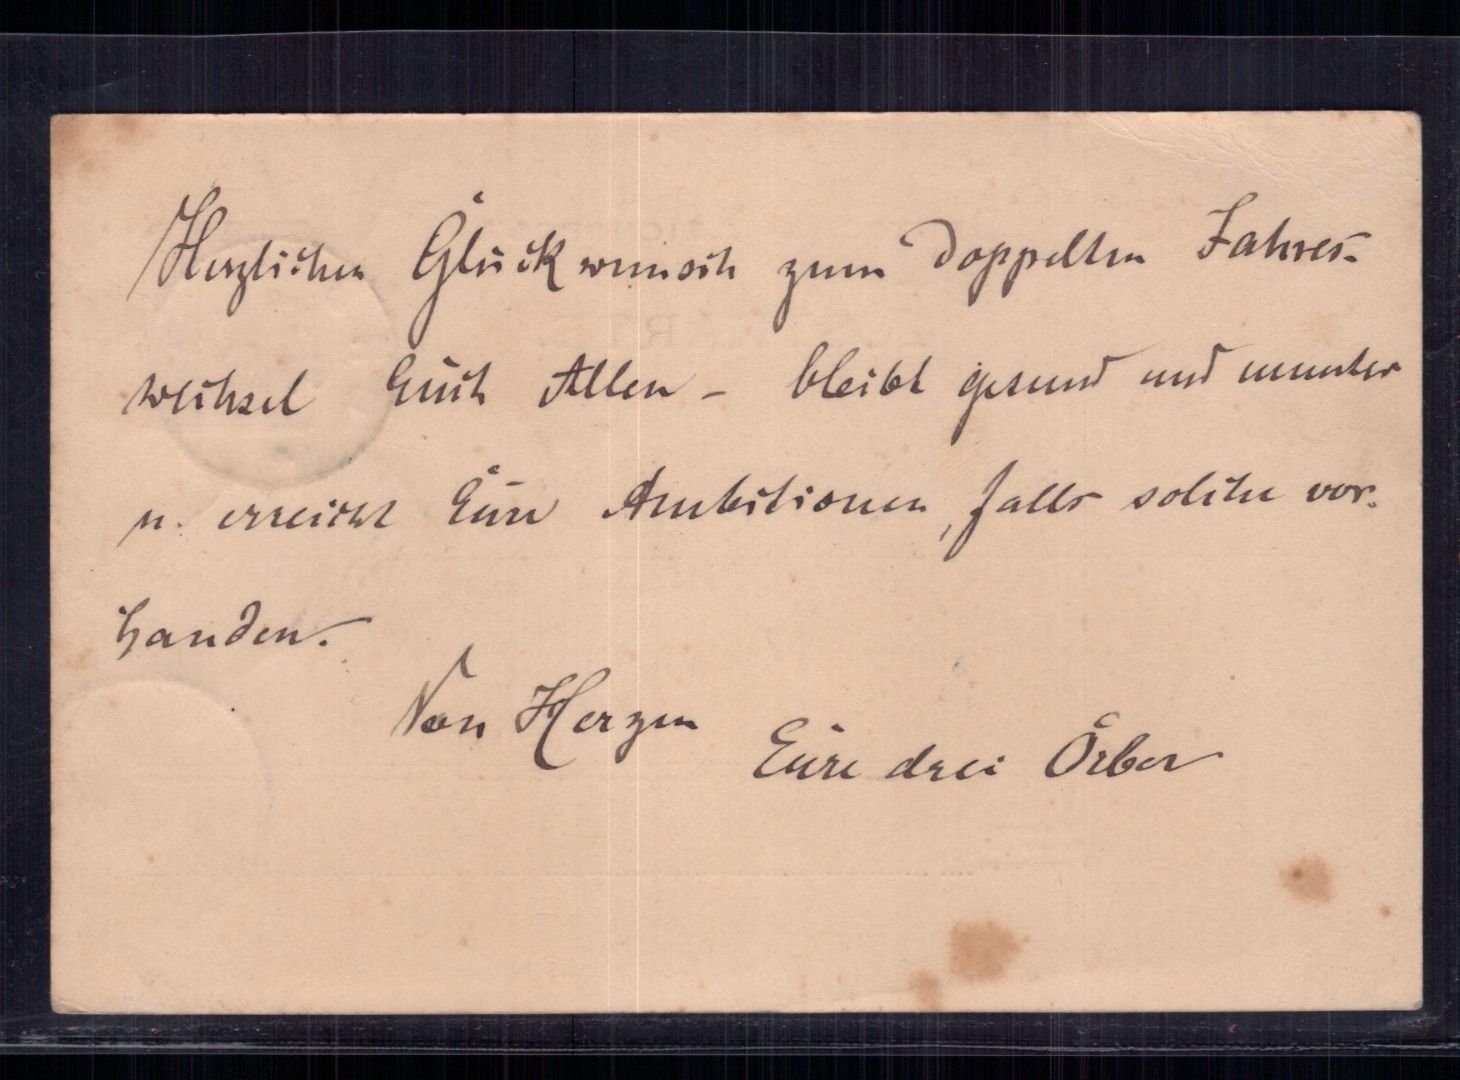 Herzlichen Glückwunsch zum Doppelten Jahres-
wechsel Euch Allen – bleibt gesund und munter
u. erreicht Eure Ambitionen, falls solche vor-
handen.
Von Herzen
Eure drei Örber